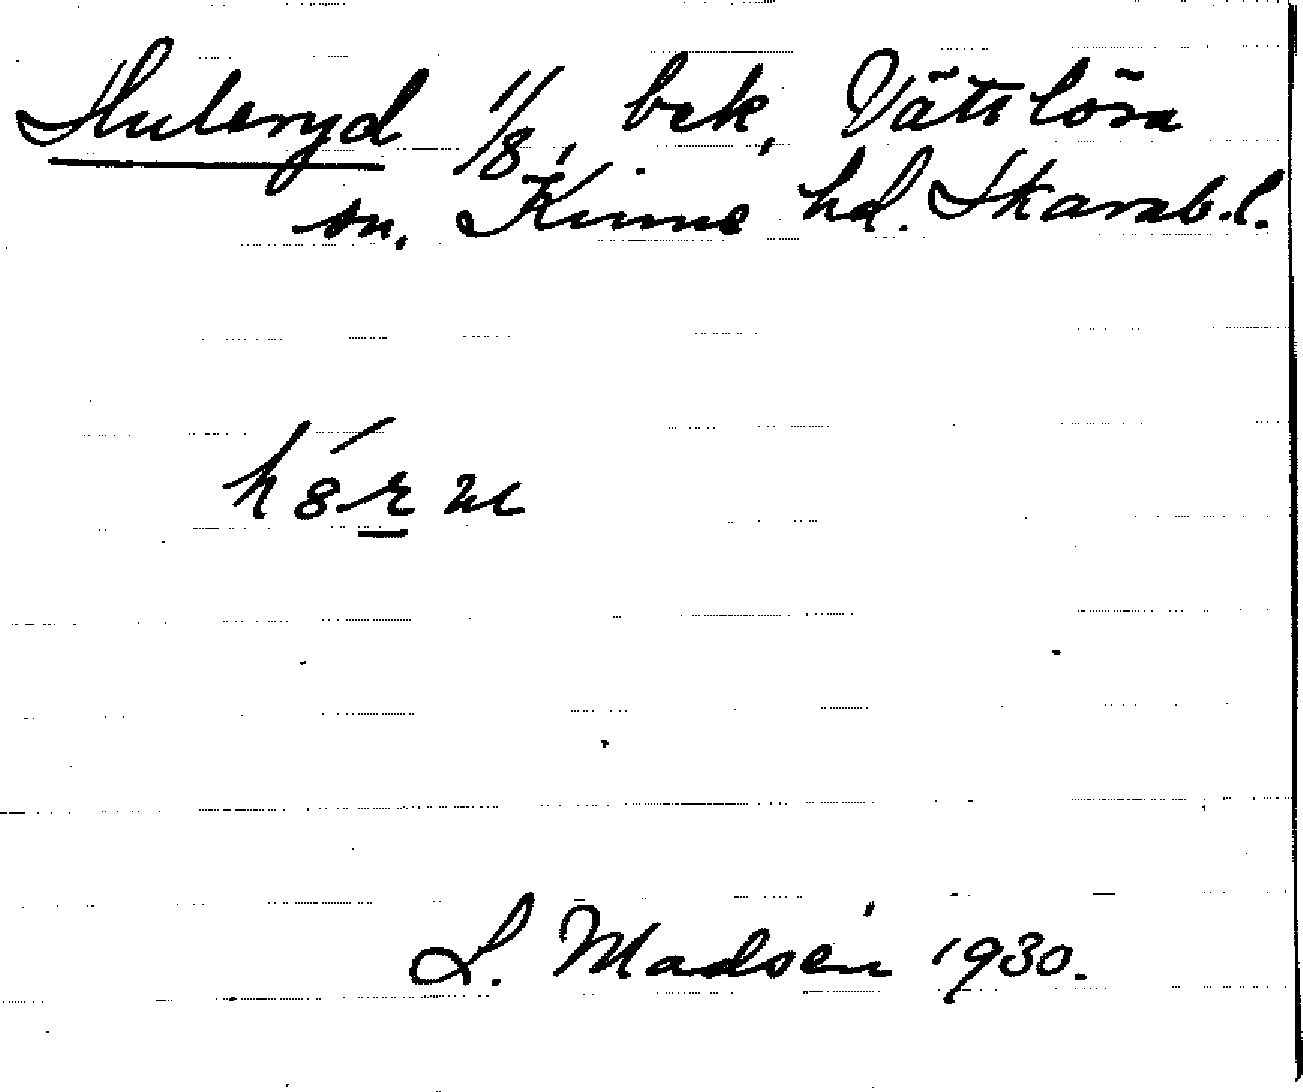 Huleryd 1/8, bek, Vättlösa
sn, Kinne hd. Skarab.l.
L. Madsén 1930.